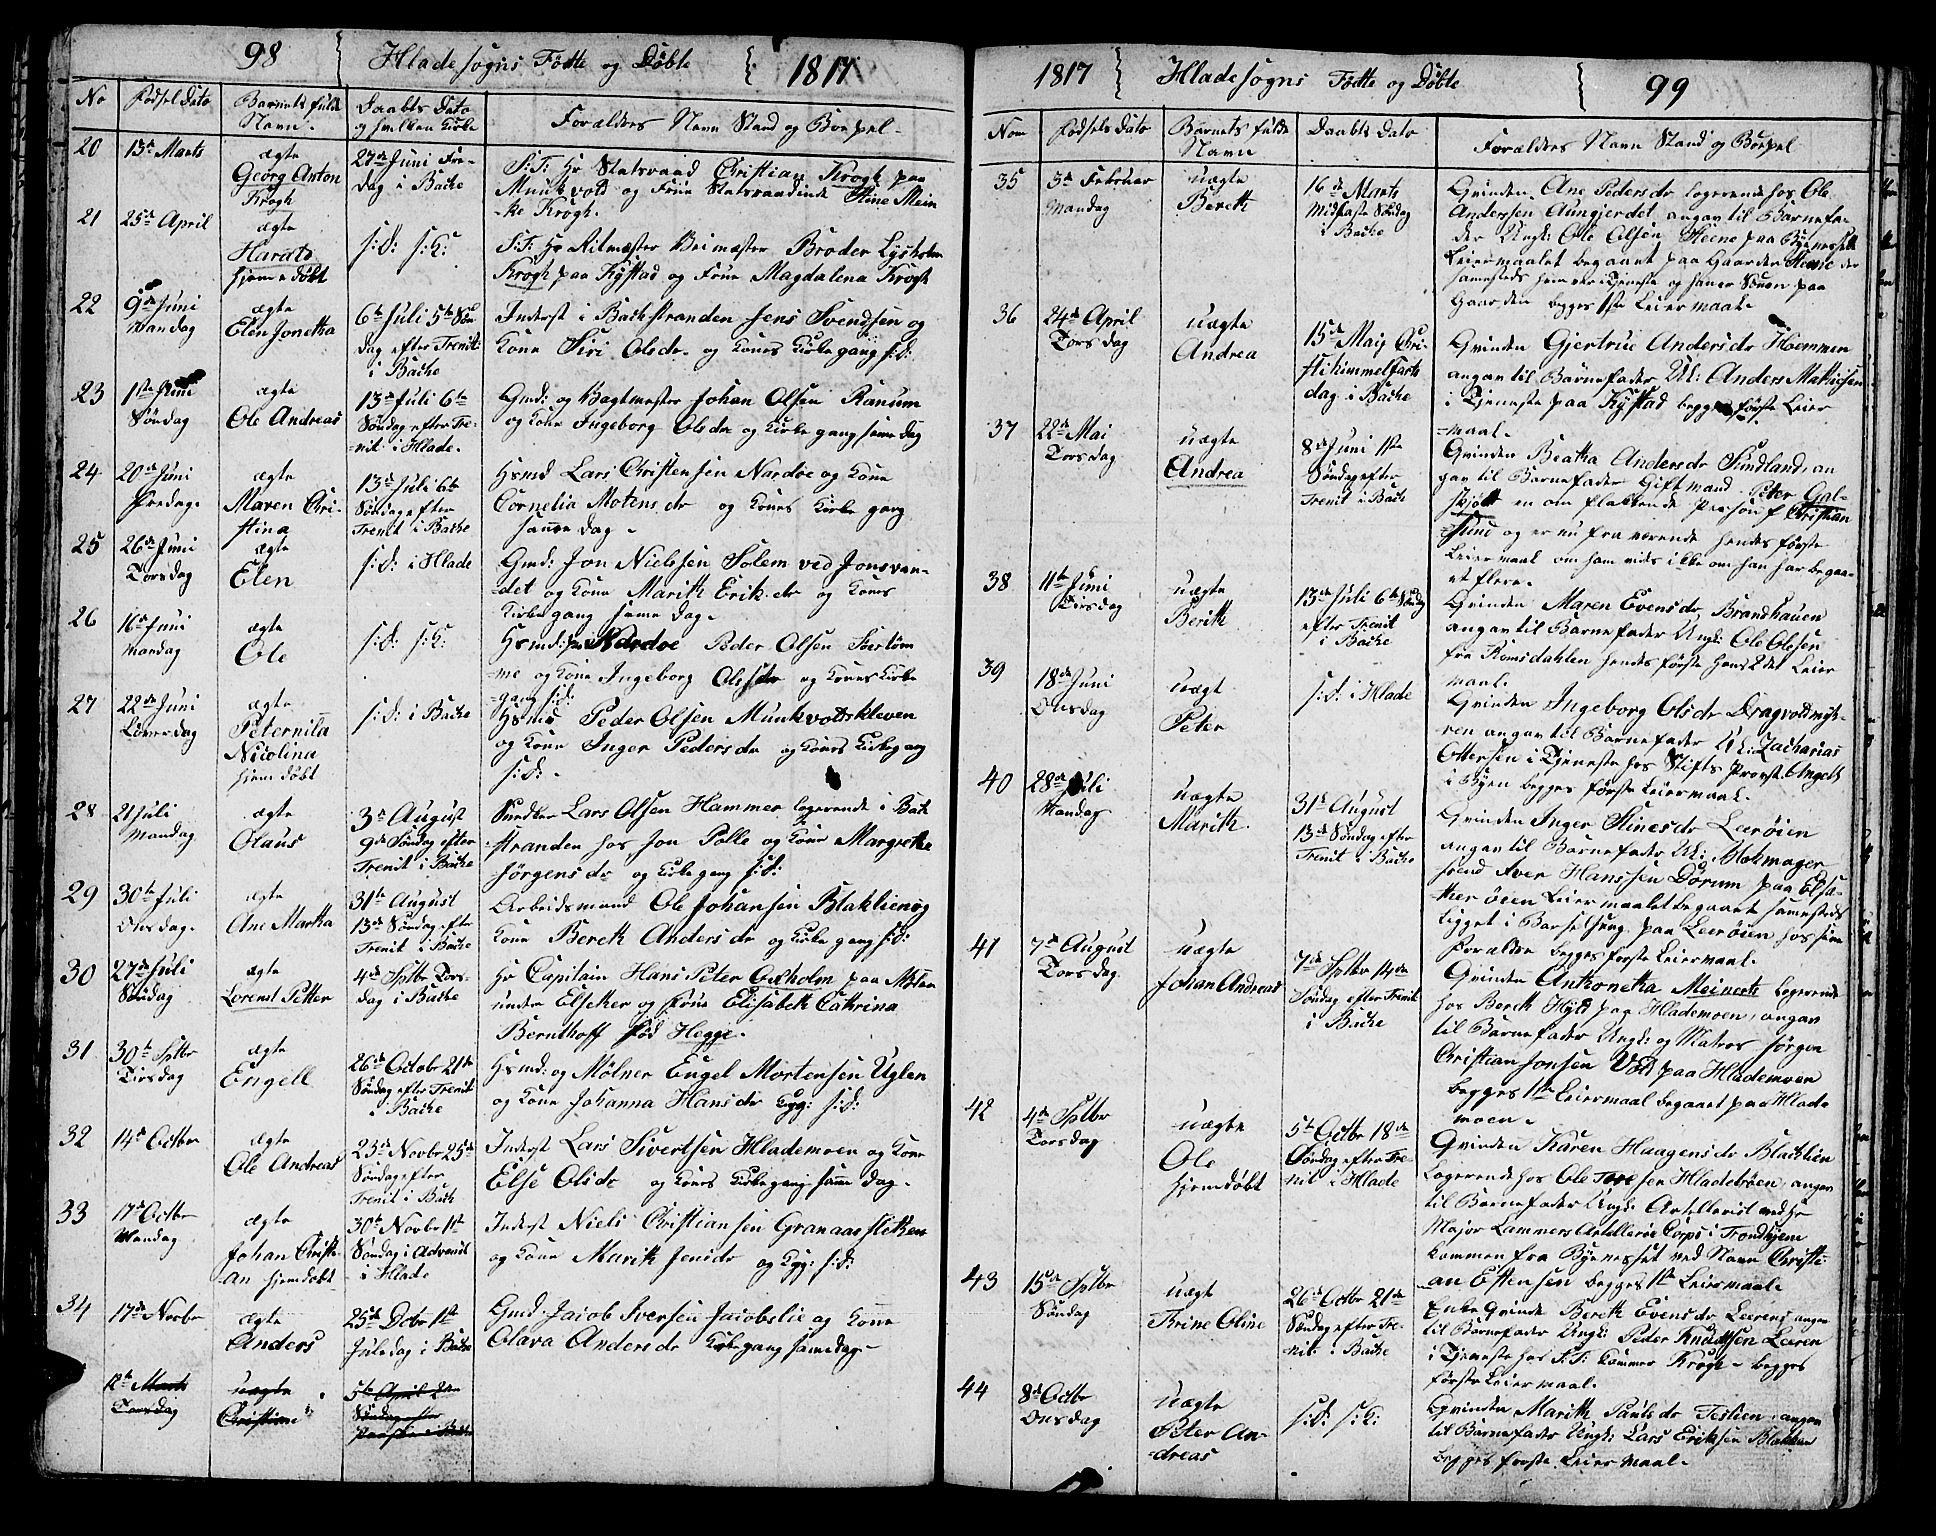 98 Hlade sogns Födte og Döbte 1817
No Födsel Dato Barnets fulde Navn. Daabs Dato og hvilken Kirke Forældres Navn Stand og Boepæl.
20 13de Marts ægte Georg Anton Krogh 27de Juni Fredag i Bache
S: T: Hr Statsraad Christian Krogh paa
Munkvold og Frue Statsraadinde Stine Mein
ke Krogh.
21 25de April ægte Harald hjemedöbt s: d: s: K:
S: T: Hr Ritmæster Broder Lysholm
Krogh paa Kystad og Frue Magdalena Krogh
22 9de Juni Mandag ægte Elen Jonetta 6te Juli 5te Söndag efter Trenit: i Bache
Inderst i Bachstranden Jens Svendsen og
Kone Siri Olsdr. og Kones Kirkegang s: d:
23 1ste Juni Söndag ægte Ole Andreas 13de Juli 6te Söndag efter Trenit: i Hlade.
Gmd: og Bagtmester Johan Olsen Ranum
og Kone Ingeborg Olsdr og Kirkegang samme Dag
24 20de Juni Fredag. ægte Maren Christina 13de Juli 6te Söndag efter Trenit i Bache
Hsmd Lars Christensen Nardoe og Kone
Cornelia Motensdr og Kones Kirkegang
samme dag.
25 26de Juni Torsdag ægte Elen s: d: i Hlade
Gmd: Jon Nielssen Solem ved Jonsvan-
det og Kone Marith Eriksdr og Kones
Kirkegang samme dag.
26 16de Juni Mandag ægte Ole s: d: s: K:
Hsmd: paa Nardoe Peder Olsen
og Kone Ingeborg Olsdr og Kones Kirke
gang s: d:
27 22de Juni Löverdag ægte Peternilla Nicolina hjemdöbt s: d: i Bache
Hsmd Peder Olsen Munkvoldskleven
og Kone Inger Pedersdr og Kones Kirkegang
s: d:
28 21 Juli Mandag ægte Olaus 3de August 9de Söndag efter Trenit i Bache
Snedker Lars Olsen Hammer logerende i Bach
stranden hos Jon Polle og Kone Margrethe
Jörgensdr og Kirkegang s: d:
29 30te Juli Onsdag. ægte Ane Martha 31te August 13de Söndag efter Trenit i Bache
Arbeidsmand Ole Johansen Blaklien og
Kone Bereth Andersdr og Kirkegang s: d:
30 27de Juli Söndag ægte Lorens Petter 4de Sptbr Torsdag i Bache
Hr Capitain Hans Peter paa
under Elseker og Frue Elisabeth Cathrina
Bernthoff föd Hegge.
31 30te Sptbr Tirsdag ægte Engell 26de Octobr 21de Söndag efter Trenit i Bache
Hsmd: og Mölner Engel Mortensen Uglen
og Kone Johanna Hansdr Kgg: s: d:
32 14de Octbr ægte Ole Andreas 23de Novbr 25de Söndag efter Trenit i Bache
Inderst Lars Sivertsen Hlademoen og Kone
Else Olsdr og Kones Kirkegang samme Dag.
33 17de Octbr Mandag ægte Johan Christian hjemdöbt 30te Novbr 1ste Söndag i Advent i Hlade
Inderst Niels Christiansen Granaassletten
og Kone Marith Jensdr og Kgg: s: d:
34 17de Novbr ægte Anders 25de Dcbr 1ste Juledag i Bache
Gmd: Jacob Iversen Jacobslie og Kone
Olava Andersdr Kirkegang samme dag.
12te Marts Torsdag uægte Christine 5te April 2den Söndag efter Paaske i Bache
1817 Hlade sogns Födte og Döbte 99
Nom Födsels Dato Barnets fulde Navn Daabs Dato Forældres Navn Stand og Boepæl
35 3de Februar Mandag uægte Bereth 16de Marts Midfaste Söndag i Bache
Qvinden Ane Pedersdr logerende hos Ole
Anderssen Aungjerdet, angav til Barnefa-
der Ungk: Ole Olsen Steene paa Byenesset
Leiermaalet begaaet paa Gaarden Steene der
sammesteds hun var i Tjeneste og han er Sönen paa
Gaarden begges 1ste Leiermaal.
36 24de April Torsdag uægte Andrea 15de May Christi himmelfarts dag i Bache
Qvinden Gjertrue Andersdr Hoemmen
angav til Barnefader Uk: Anders Mathisen
i Tjeneste paa Kystad begges förste Leier
-maal.
37 22de Mai Torsdag uægte Andrea 8de Juni 1ste Söndag efter Trenit i Bach
Qvinden Beatha Andersdr Sundland, an
gav til Barnefader Gift mand Peter Gal-
skjött en omflakkende person f Christian
sund og er nu fraværende hendes förste
Leiermaal om ham vides ikke om han har begaa-
et flere.
38 11te Juni Tirsdag uægte Berith 13de Juli 6te Söndag efter Trenit i Bache
Qvinden Maren Evensdr Brandhauen
angav til Barnefader Ungk: Ole Olsen
fra Romsdahlen hendes förste hans 2det Leier
maal.
39 18de Juni Onsdag uægt Peter s: d: i Hlade
Qvinden Ingeborg Olsdr Dragvoldmyh-
ren angav til Barnefader Uk: Zacharias
Ottersen i Tjeneste hos Stifts Provst Angell
i Byen begges förste Leiermaal.
40 28de Juli Mandag uægte Marith 31te August 13de Söndag efter Trenit i Bache
Qvinden Inger Stinesdr Leeröien
angav til Barnefader Uk: Blokmager
svend Aver Hanssen Dörum paa Elsa-
theröien Leiermaalet begaaet sammesteds
ligget i Barselseng paa Leeröien hos sine
Foraldre begges förste Leiermaal.
41 7de August Torsdag uægte Johan Andreas 7de Sptbr 14de Söndag efter Trenit i Bache
Qvinden Anthonetha Meinerts Logerende
hos Bereth Hyld paa Hlademoen, angav
til Barnefader Ungk: og Matros Jörgen
Christian Jonsen Vold paa Hlademoen
begges 1ste Leiermaal begaaet paa Hlade
moen.
42 4de Sptbr Torsdag uægte Ole hjemdöbt 5te Octbr 18de Söndag efter Trenit i Hlade
Qvinden Karen Haagensdr Blacklien
Logerende hos Ole Toresen Hladebøen, angav
til Barnefader Ungk: Artellerist ved Hr
Major Lammers Artellerie Corps i Trondhjem
kommen fra Byenesset ved Navn Christi-
an Estensen begges 1ste Leiermaal.
43 15de Sptbr Söndag uægt Trine Oline 26de Octbr 21de Söndag efter Trenit: i Bache
Enke Qvinde Bereth Evensdr Leerens angav
til Barnefader Ungk: Peder Knudtsen Leeren
i Tjeneste hos S: T: Kammer Krogh - begges
förste Leiermaal.
44 8de Octbr Onsdag uægte Peter Andreas s: d: s: K:
Qvinden Marith Paulsdr Teslien, angav
til Barnefader Ungk: Lars Eriksen Blaklien
begges förste Leiermaal.